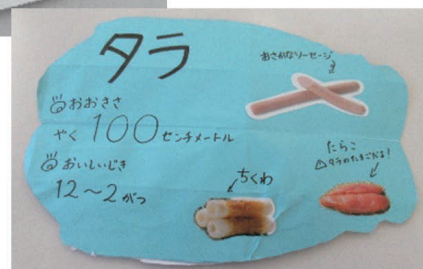 タラ
おさかなソーセージ
おおきさ
やく100センチメートル
おいしいじき
12～2がつ
ちくわ
たらこ
タラのたまごだよ!